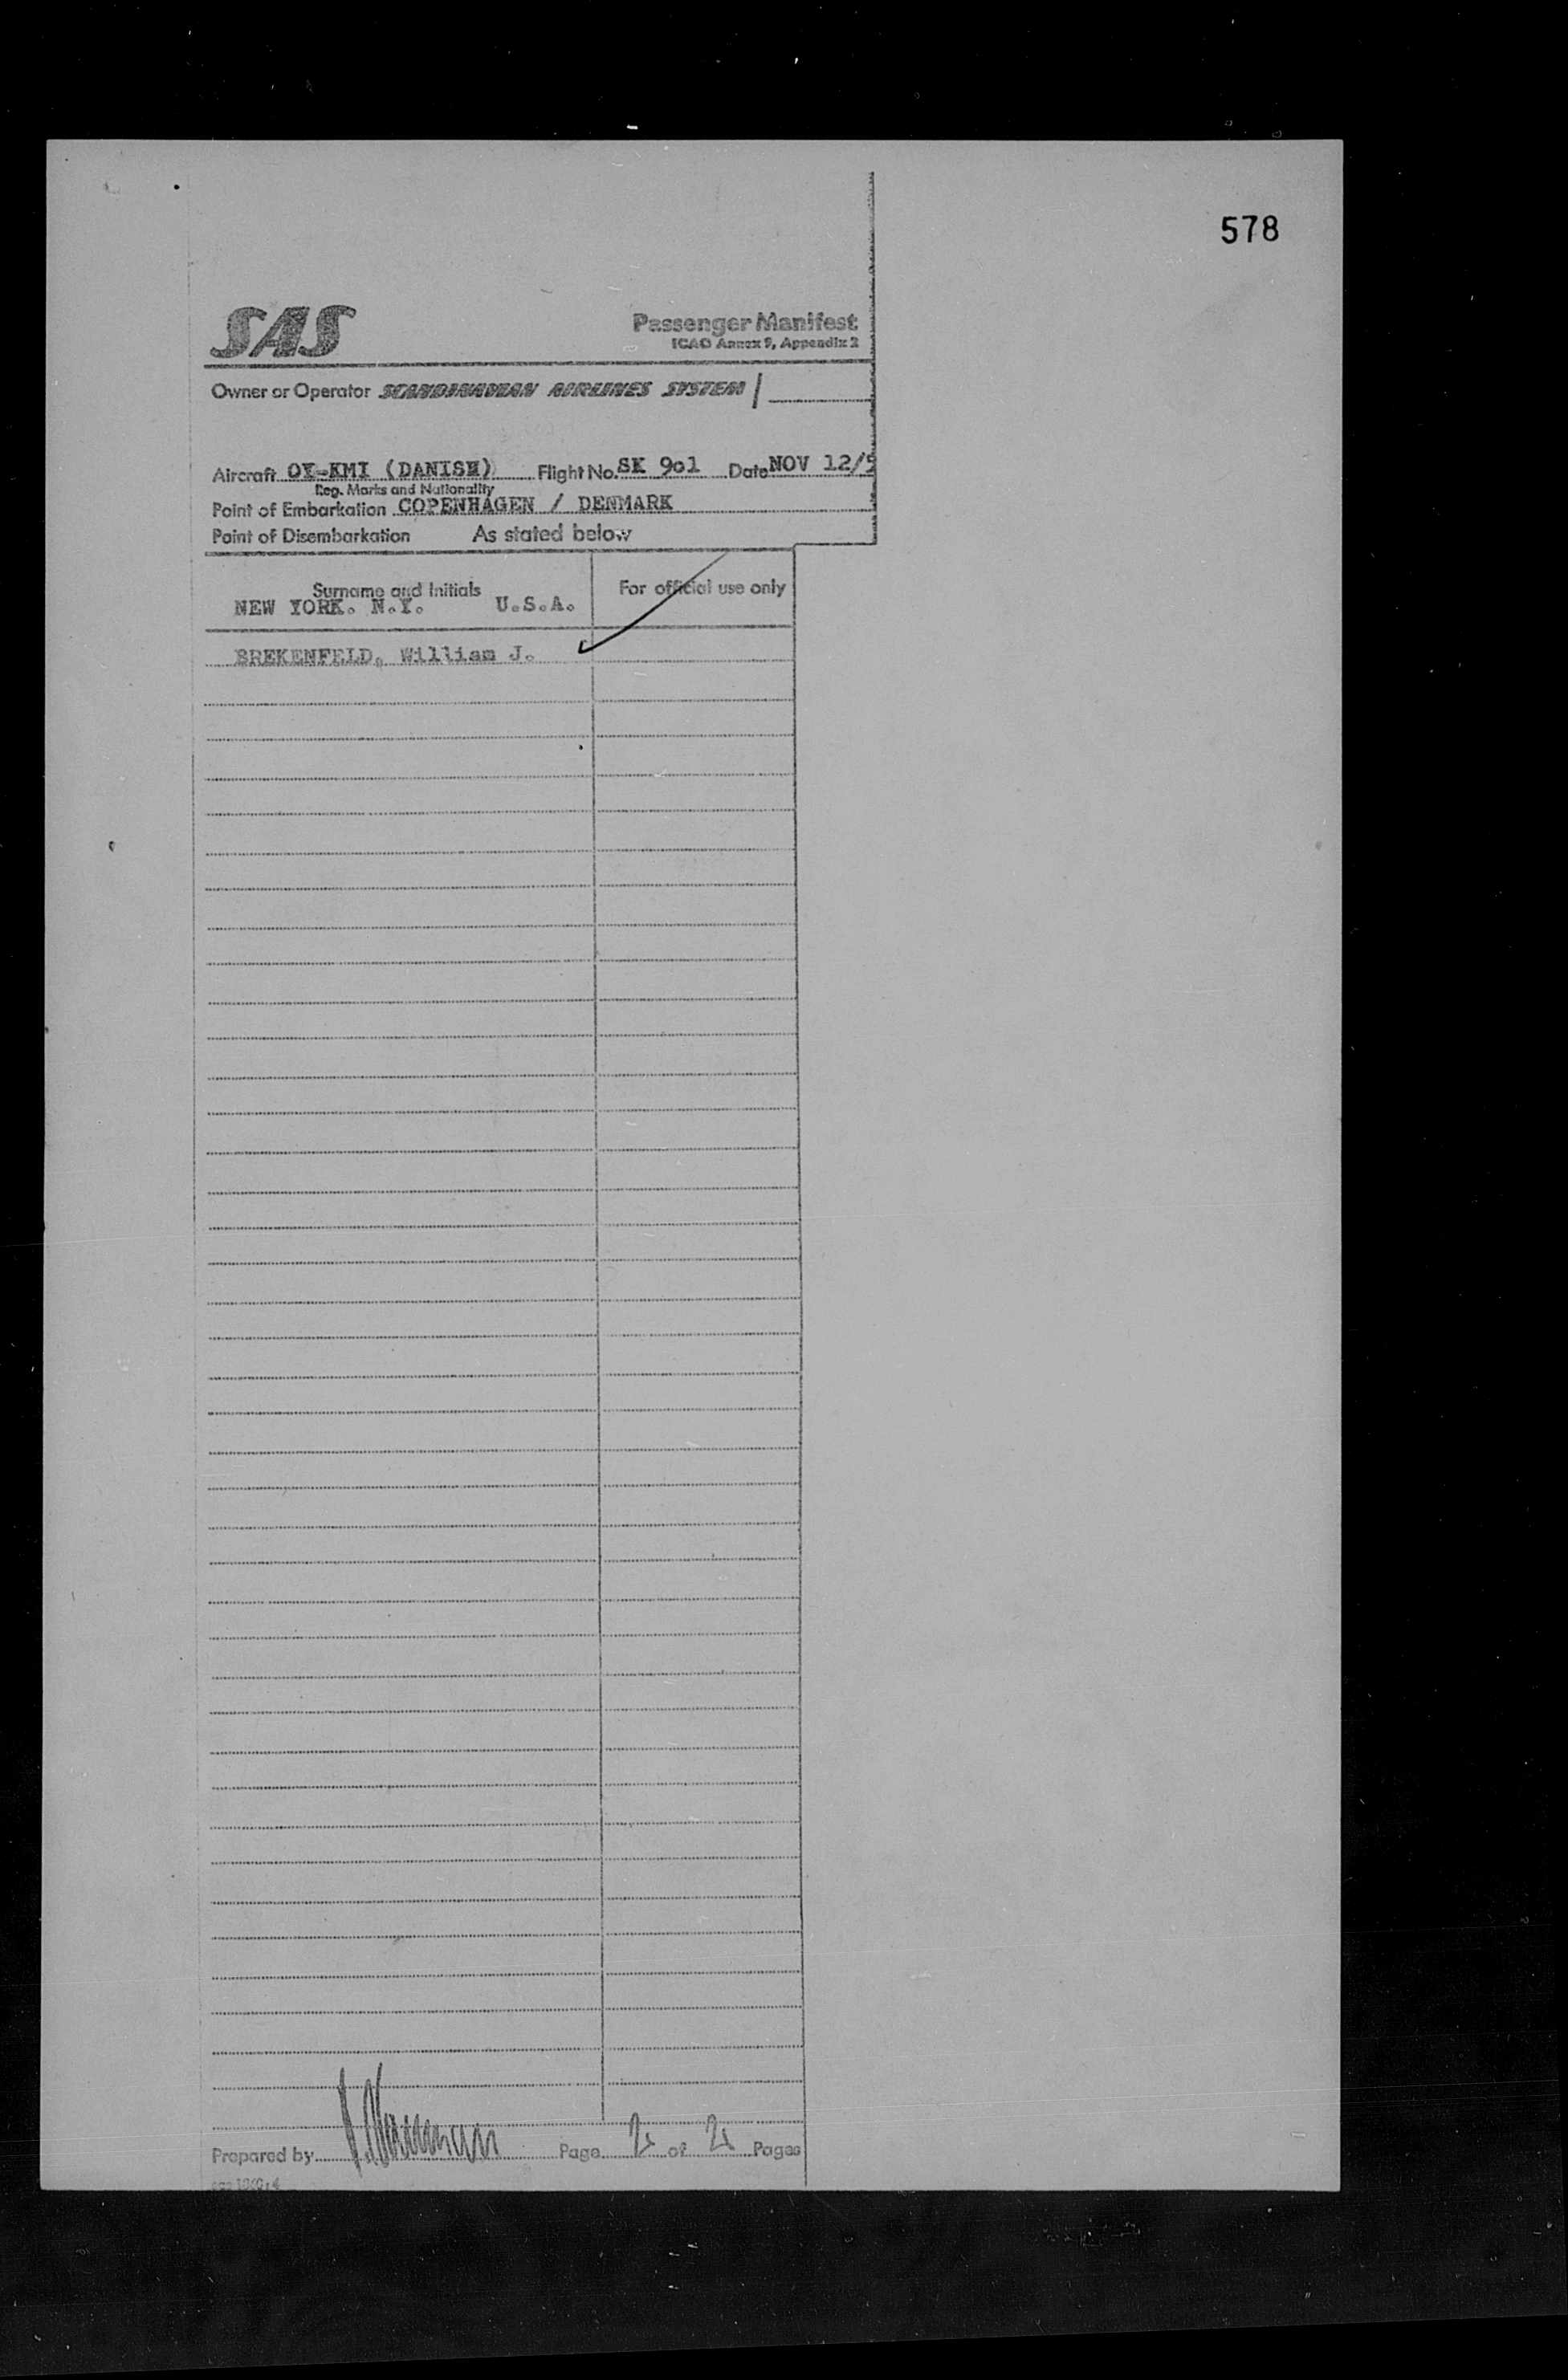 578
SAS
Passenger Manifest
ICAO Annex 9, Appendix 2
Owner or Operator SCANDINAVIAN AIRLINES SYSTEM
Aircraft OY-KMI (DANISH) Flight No. SK 901 Date NOV 12/5
Reg. Marks and Nationality
Point of Embarkation COPENHAGEN / DENMARK
Point of Disembarkation As stated below
Surname and Initials For official use only
NEW YORK. N.Y. U.S.A.
BREKENFELD, William J.
Prepared by Page 2 of 2 Pages